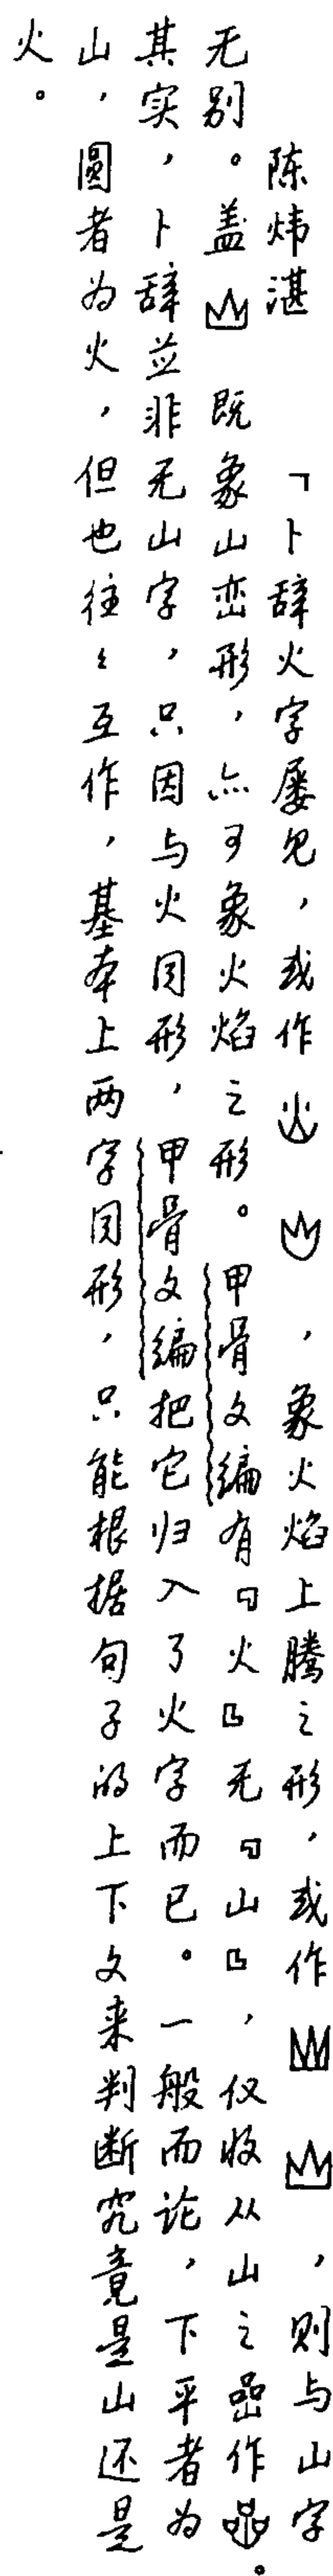 陈炜湛　「卜辞火字屡见，或作　，象火焰上腾之形，或作　，则与山字
无别。盖　既象山峦形，亦可象火焰之形。甲骨文编有『火』无『山』，仅收从山之嵒作　。
其实，卜辞并非无山字，只因与火同形，甲骨文编把它归入了火字而已。一般而论，下平者为
山，圆者为火，但也往〻互作，基本上两字同形，只能根据句子的上下文来判断究竟是山还是
火。